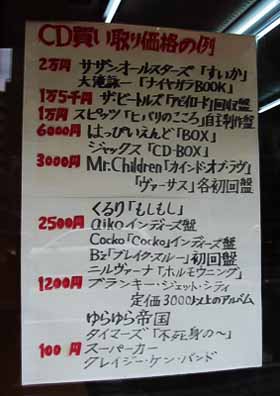 CD買い取り価格の例
2万円 サザンオールスターズ「すいか」
大滝詠一「ナイヤガラBOOK」
1万5千円 ザ・ビートルズ「アビイロード」回収盤
1万円 スピッツ「ヒバリのこころ」自主制作盤
6000円 はっぴいえんど「BOX」
ジャックス「CD-BOX」
3000円 Mr.Children「カインド・オブ・ラヴ」
「ヴァーサス」各初回盤
くるり「もしもし」
2500円 aikoインディーズ盤
Cocko「Cocko」インディーズ盤
B'z「ブレイク・スルー」初回盤
ニルヴァーナ「ホルモウニング」
1200円 ブランキー・ジェット・シティ
定価3000以上のアルバム
ゆらゆら帝国
タイマーズ「不死身の〜」
100円 スーパーカー
クレイジー・ケン・バンド